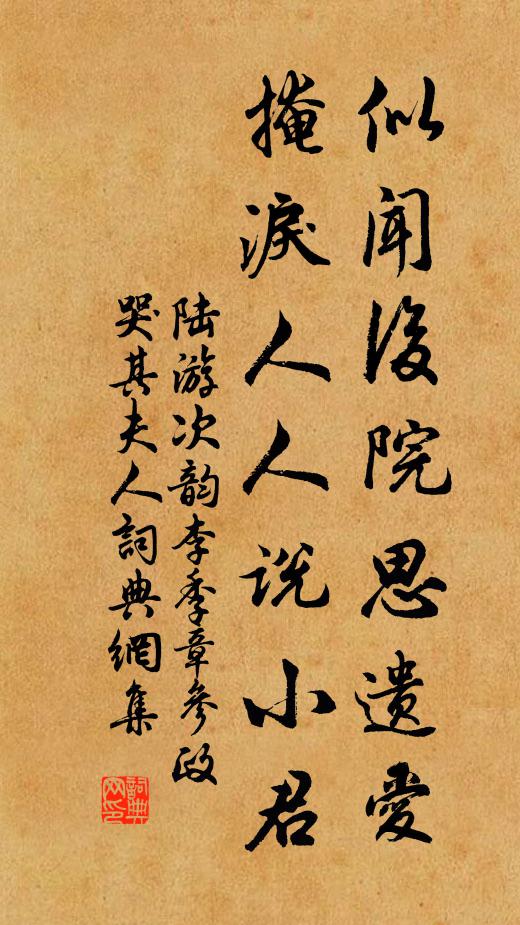 似闻後院思遗愛
掩淚人人说小君
陆游次韵李季章參政
哭其夫人詞典網集
詞典网印